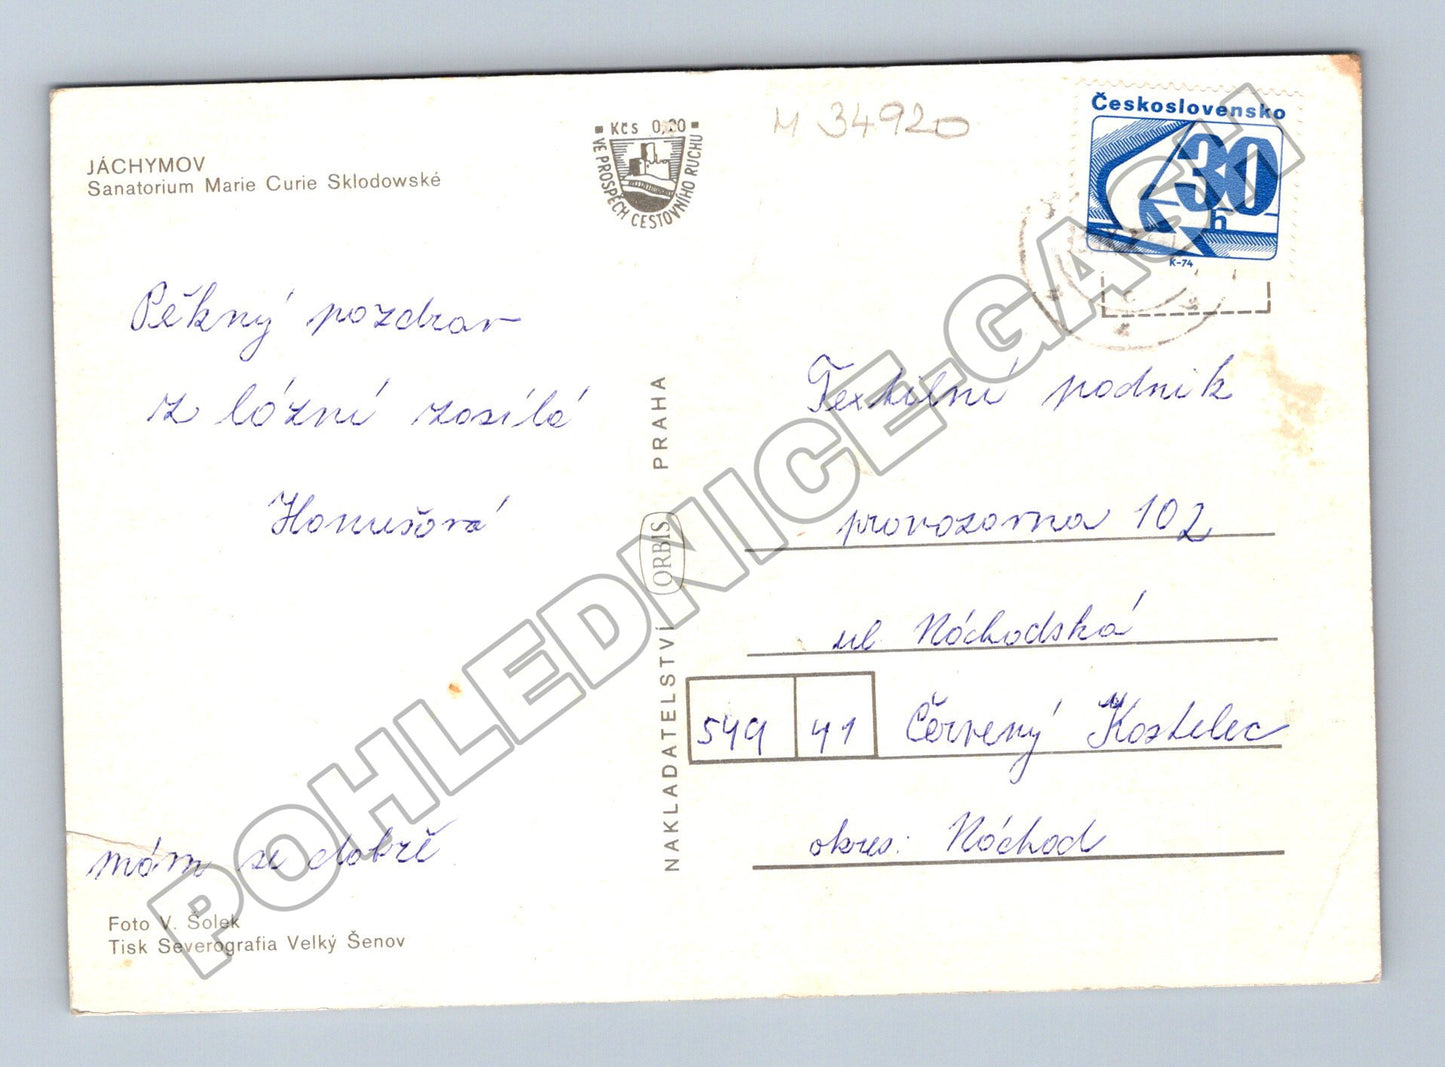 JÁCHYMOV
Sanatorium Marie Curie Sklodowské
Kčs 0,20
VE PROSPĚCH CESTOVNÍHO RUCHU
M 34920
Československo
30
h
K-74
Pěkný pozdrav
z lázní zasílá
Hanušová
mám se dobře
Foto V. Šolek
Tisk Severografia Velký Šenov
NAKLADATELSTVÍ ORBIS PRAHA
Textilní podnik
provozovna 102
ul Náchodská
549 41 Červený Kostelec
okres: Náchod
POHLEDNICE-GASH